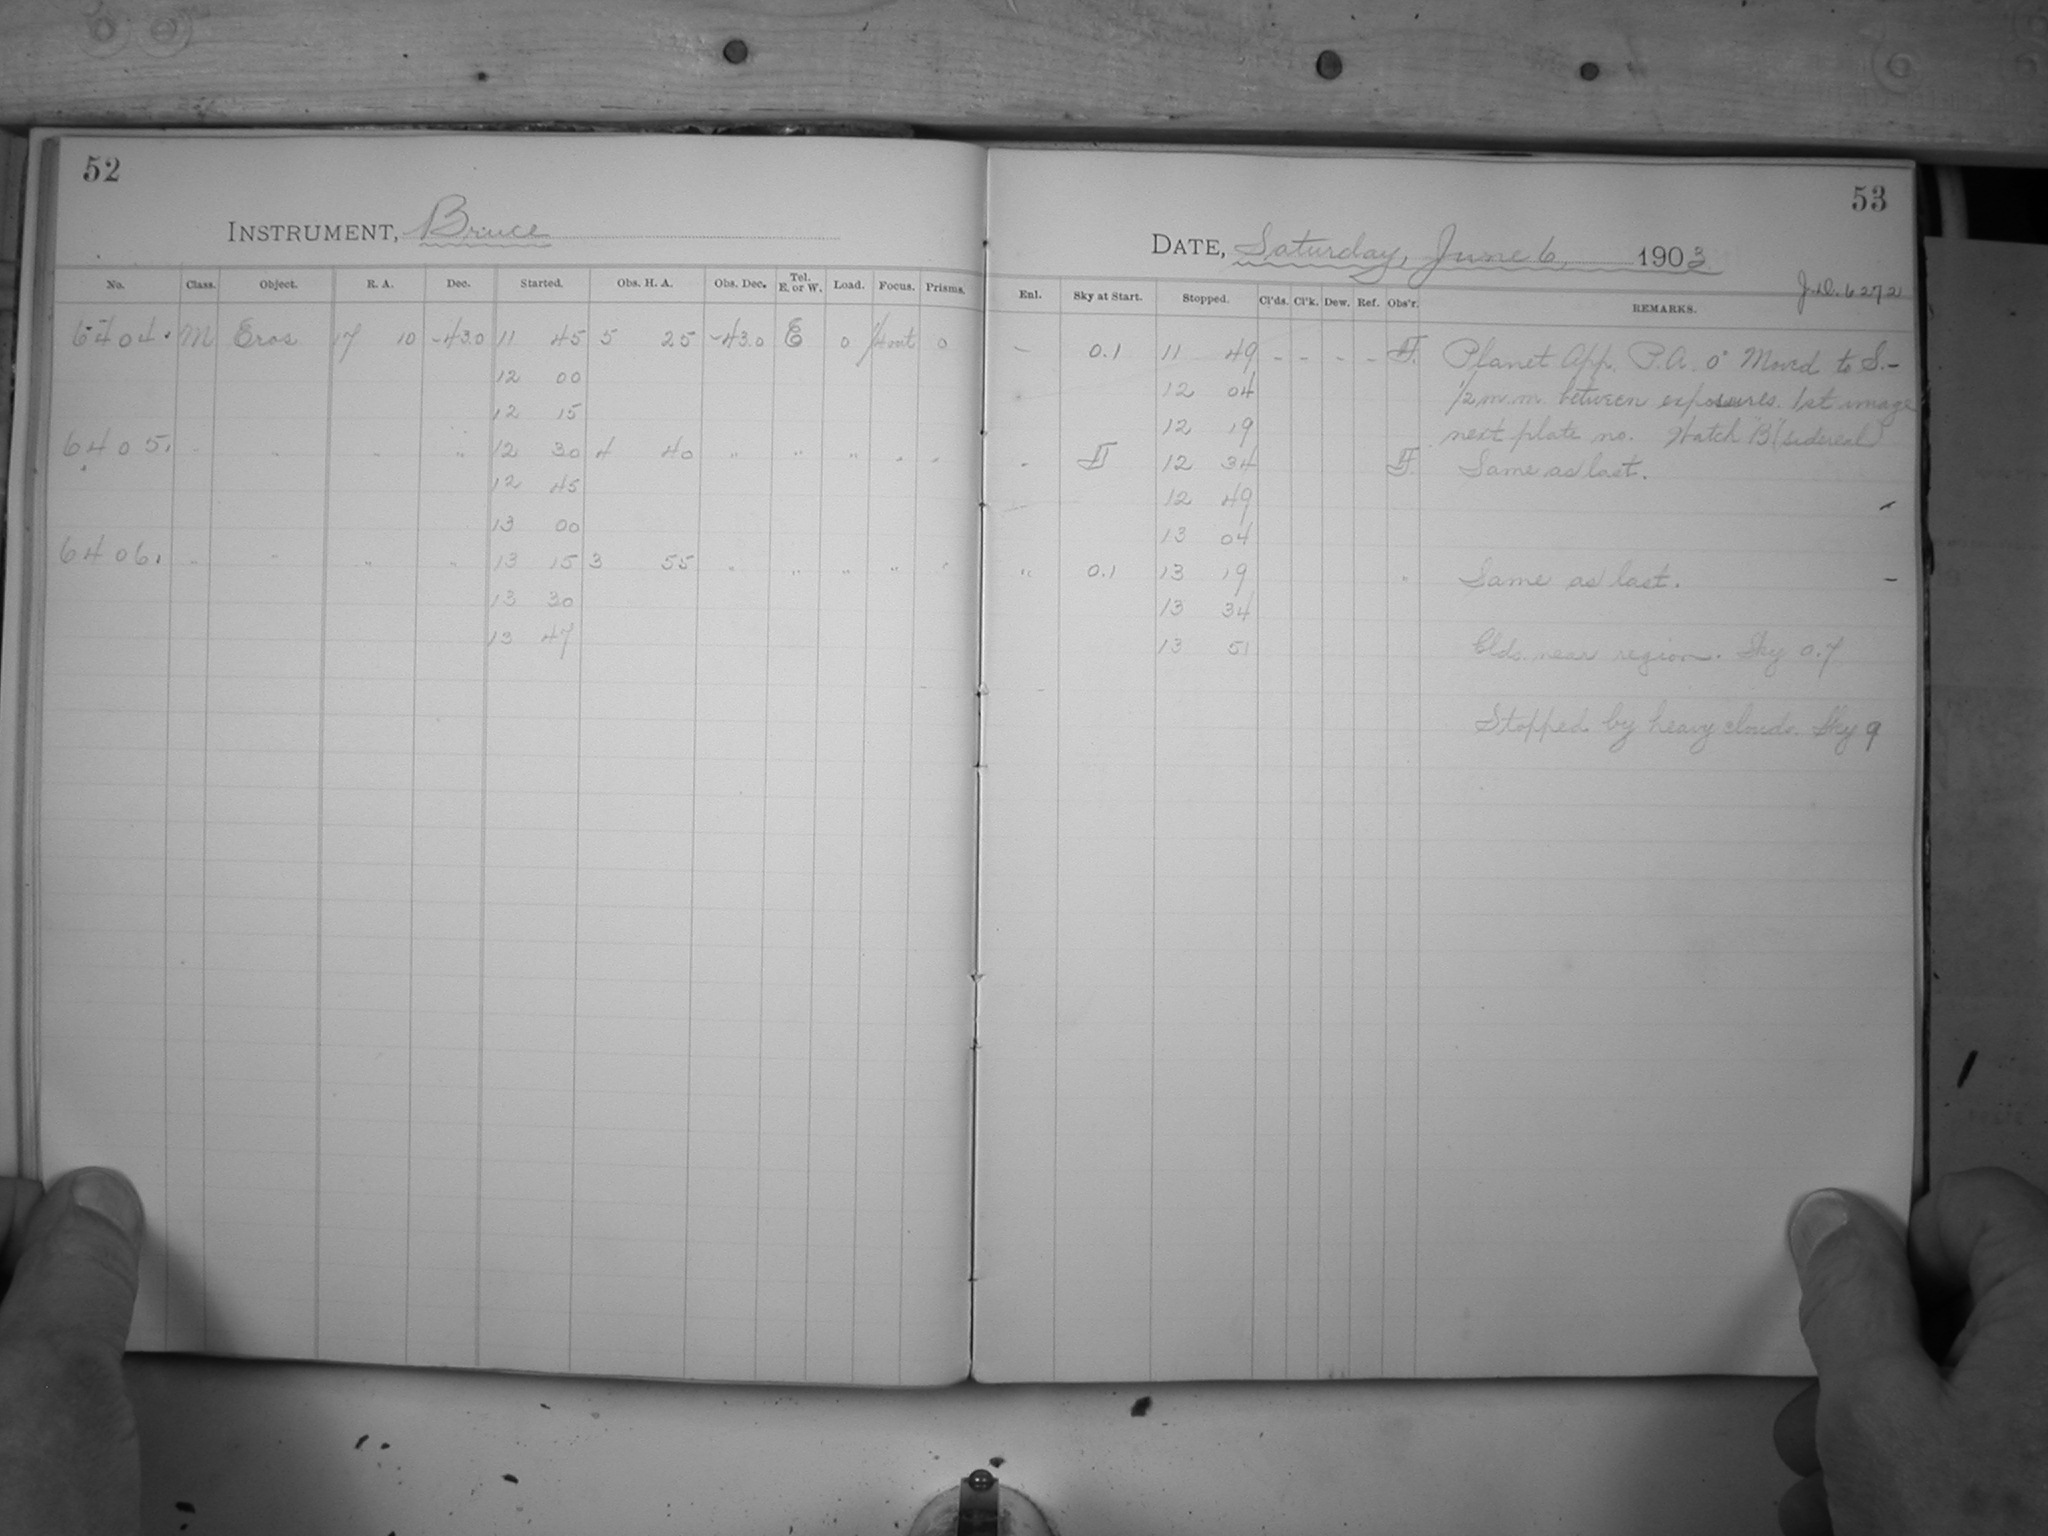 52
INSTRUMENT, Bruce
No. Class. Object. R. A. Dec. Started. Obs. H. A. Obs. Dec. Tel. E. or W. Load. Focus. Prisms.
6404. M Eros 17 10 -43.0 11 45 5 25 -43.0 E 0 0
12 00
12 15
6405. " " " " 12 30 4 40 " " " " "
12 45
13 00
6406. " " " " 13 15 3 55 " " " " "
13 30
13 47
53
DATE, Saturday, June 6, 1903
J.D. 6272
Enl. Sky at Start. Stopped. Cl'ds. Cl'k. Dew. Ref. Obs'r. REMARKS.
- 0.1 11 49 - - - - Planet App. P.A. 0° Moved to S.-
12 04 1/2 m.m. between exposures. 1st image
12 19 next plate no. Watch B (sidereal)
- 12 34 Same as last.
12 49
13 04
" 0.1 13 19 " Same as last. -
13 34
13 51 Clds. near region. Sky 0.7
Stopped by heavy clouds. Sky 9